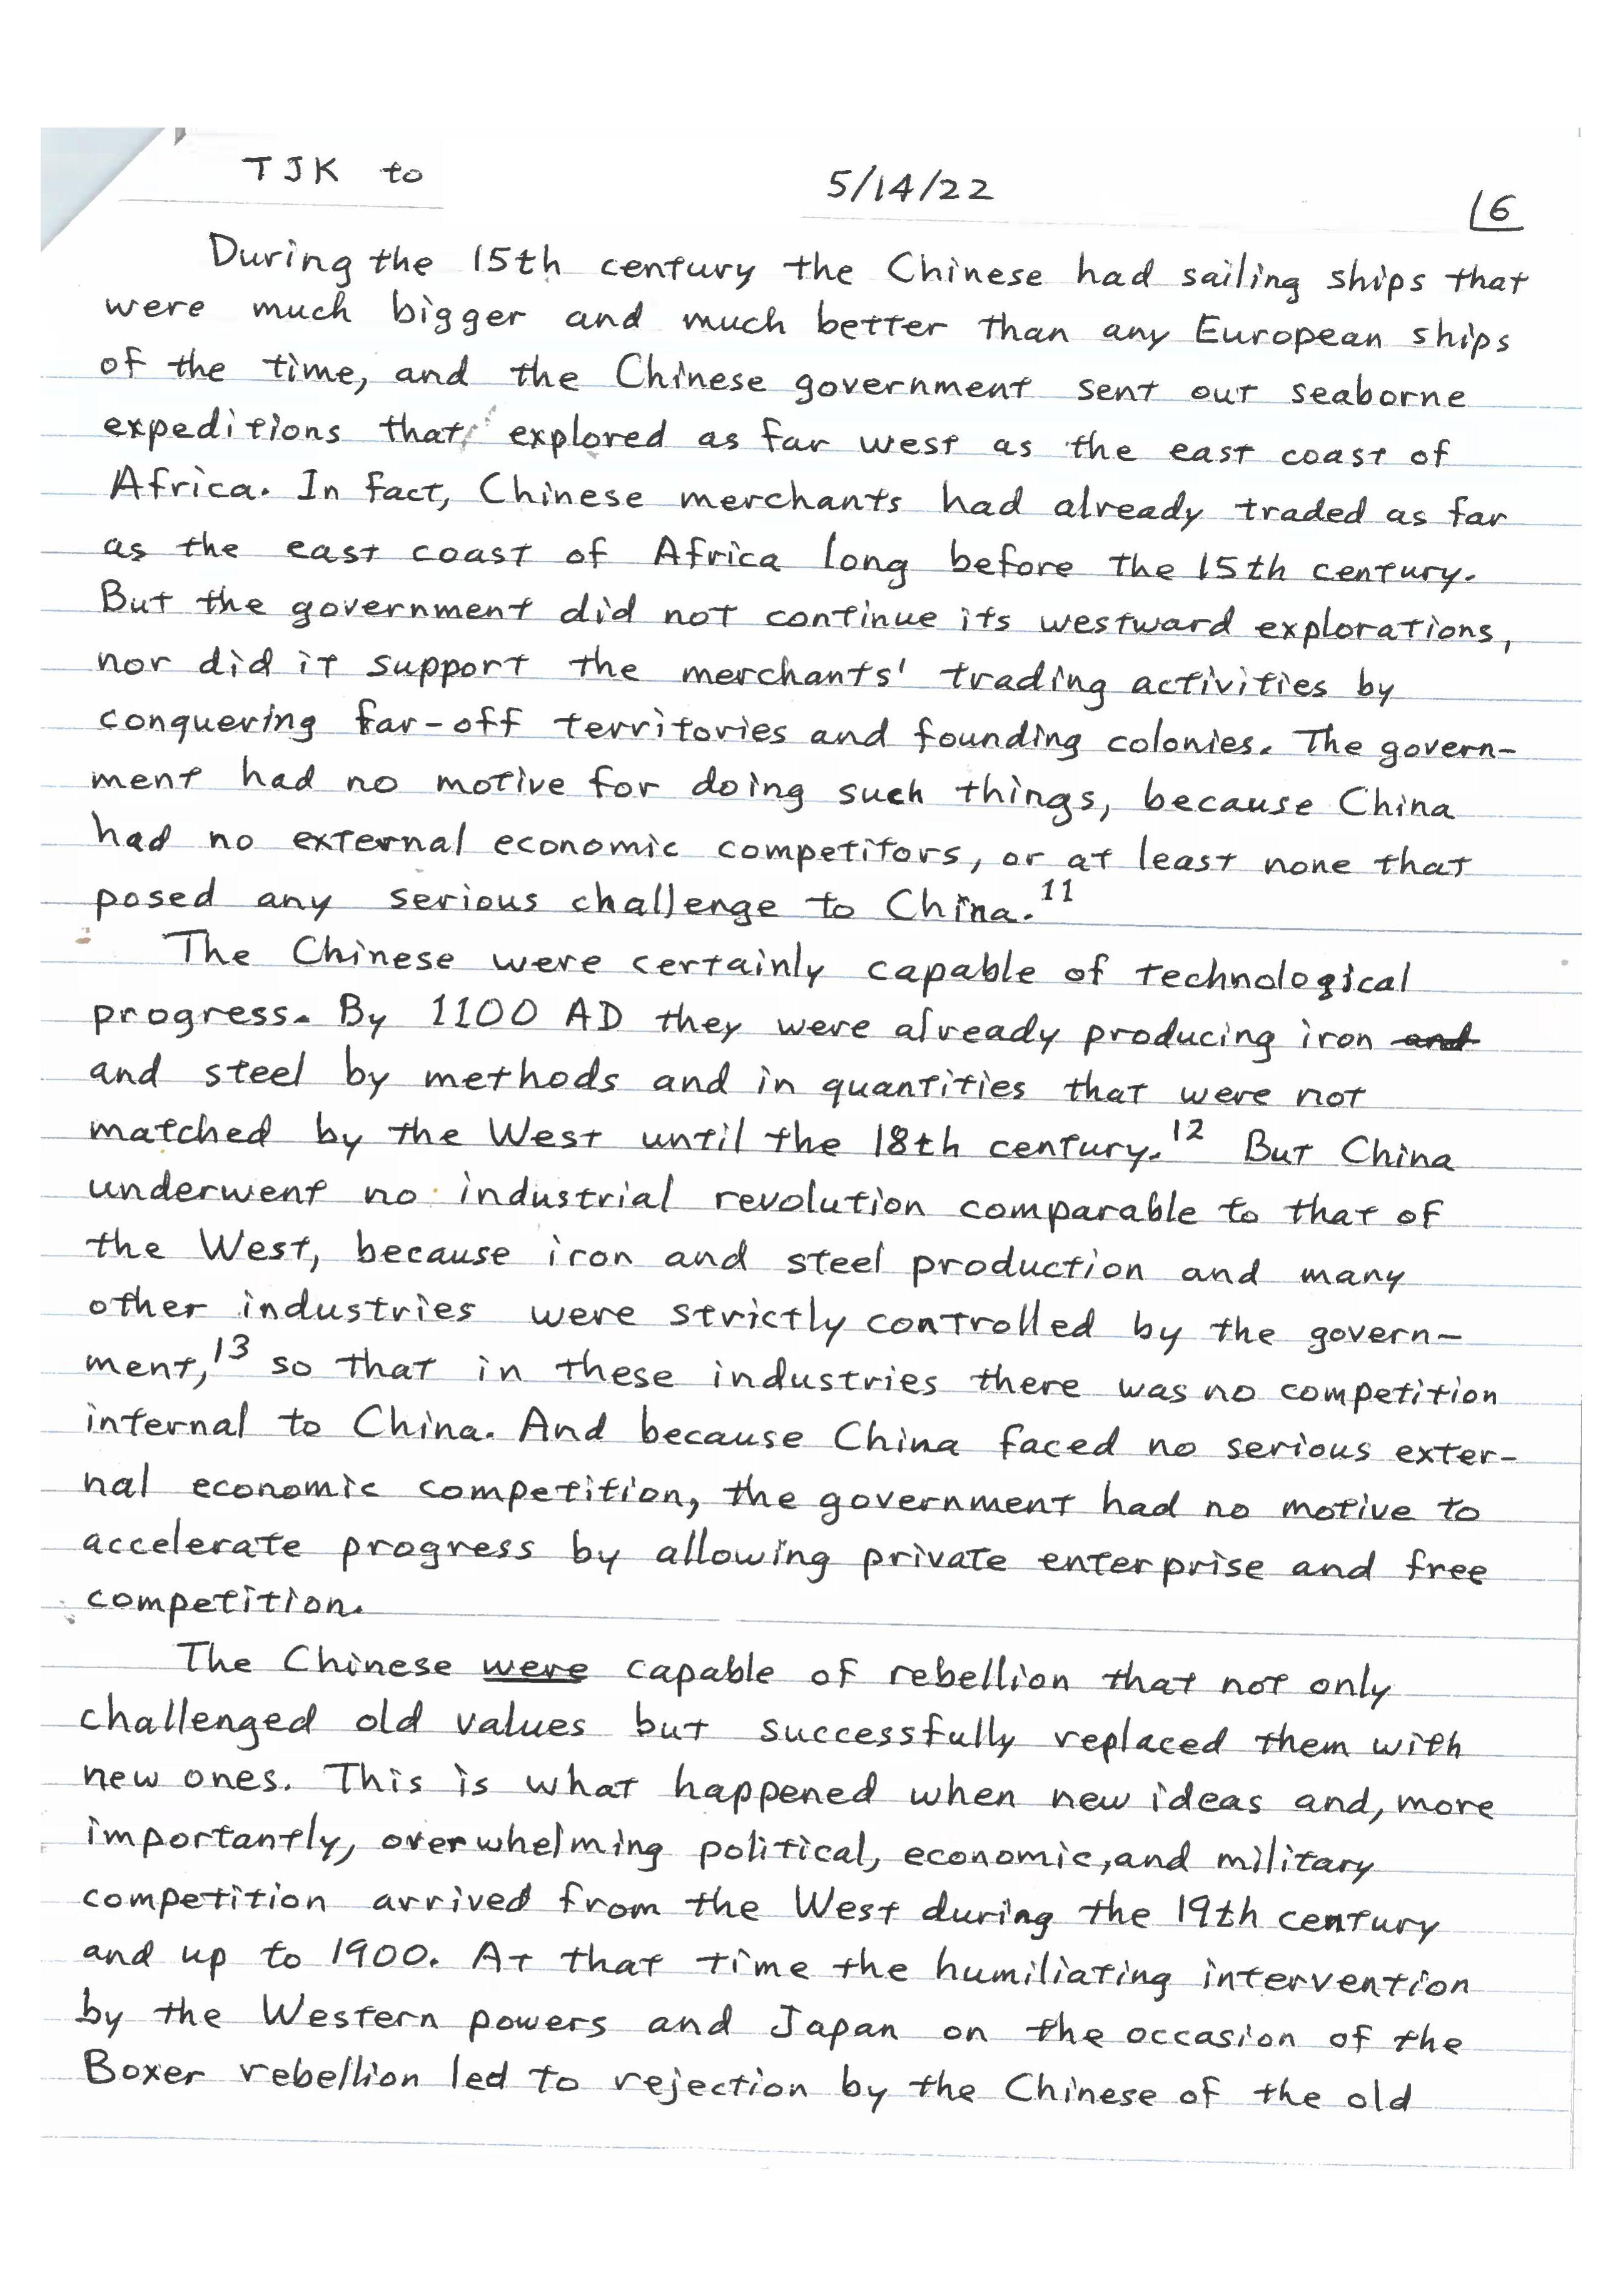 TJK to
5/14/22
6
During the 15th century the Chinese had sailing ships that
were much bigger and much better than any European ships
of the time, and the Chinese government sent out seaborne
expeditions that explored as far west as the east coast of
Africa. In fact, Chinese merchants had already traded as far
as the east coast of Africa long before the 15th century.
But the government did not continue its westward explorations,
nor did it support the merchants' trading activities by
conquering far-off territories and founding colonies. The govern-
ment had no motive for doing such things, because China
had no external economic competitors, or at least none that
posed any serious challenge to China.11
The Chinese were certainly capable of technological
progress. By 1100 AD they were already producing iron and
and steel by methods and in quantities that were not
matched by the West until the 18th century.12 But China
underwent no industrial revolution comparable to that of
the West, because iron and steel production and many
other industries were strictly controlled by the govern-
ment,13 so that in these industries there was no competition
internal to China. And because China faced no serious exter-
nal economic competition, the government had no motive to
accelerate progress by allowing private enterprise and free
competition.
The Chinese were capable of rebellion that not only
challenged old values but successfully replaced them with
new ones. This is what happened when new ideas and, more
importantly, overwhelming political, economic, and military
competition arrived from the West during the 19th century
and up to 1900. At that time the humiliating intervention
by the Western powers and Japan on the occasion of the
Boxer rebellion led to rejection by the Chinese of the old